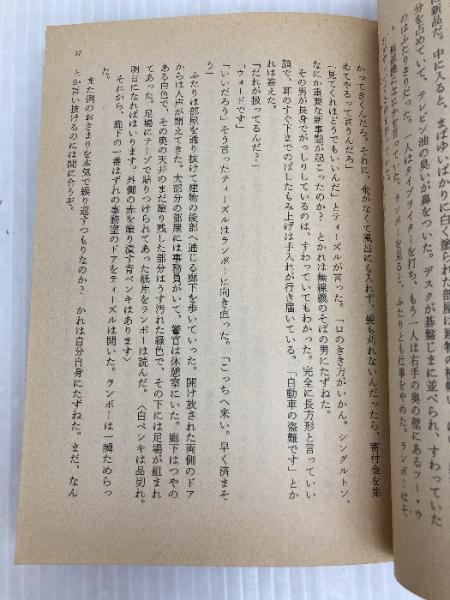 新品だ。中に入ると、まばゆいばかりに白く塗られた部屋は建物の横幅い
分を占めていて、テレビン油の臭いが鼻をついた。デスクが碁盤じまに並べられ、すわっていた
のはふたりきりだった。一人はタイプライターを打ち、もう一人は右手の奥の壁にあるツー・ウ
ランボーを見ると、ふたりとも仕事をやめた。ランボーはそ
かってきくんだろ。それに、金がなくて風呂にも入れず、髪も刈れないんだったら、寄付金を集
めてやるって言うんだろ」
「見てくれほどうでもいいんだ」とティーズルが言った。「口のきき方がいかん。シングルトン、
なにか重要な新事態が起こったのか?」とかれは無線機のそばの男にたずねた。
その男が長身でがっしりしているのは、すわっていてもわかった。完全に長方形と言っていい
顔で、耳のすぐ下までのばしたもみ上げは手入れが行き届いている。「自動車の盗難です」とか
れは答えた。
「だれが扱ってるんだ?」
「ウォードです」
「いいだろう」そう言ったティーズルはランボーに向き直った。「こっちへ来い。早く済まそ
う」
ふたりは部屋を通り抜けて建物の後部へ通じる廊下を歩いていった。開け放された両側のドア
からは人声が聞えてきた。大部分の部屋には事務員がいて、警官は休憩室にいた。廊下はつやの
ある白色で、その奥の天井のまだ塗り残した部分はうす汚れた緑色で、その下には足場が組まれ
てあった。足場にテープで貼りつけられてあった紙片をランボーは読んだ。〈白ペンキは品切れ。
明日になればはいります。外側の赤を塗り潰す青ペンキはあります〉
それから、廊下の一番はずれの事務室のドアをティーズルは開いた。ランボーは一瞬ためらっ
た。
また例のおきまりを本気で繰り返すつもりなのか? かれは自分自身にたずねた。まだ、なん
とか言い抜けるのには間に合うぞ。
37